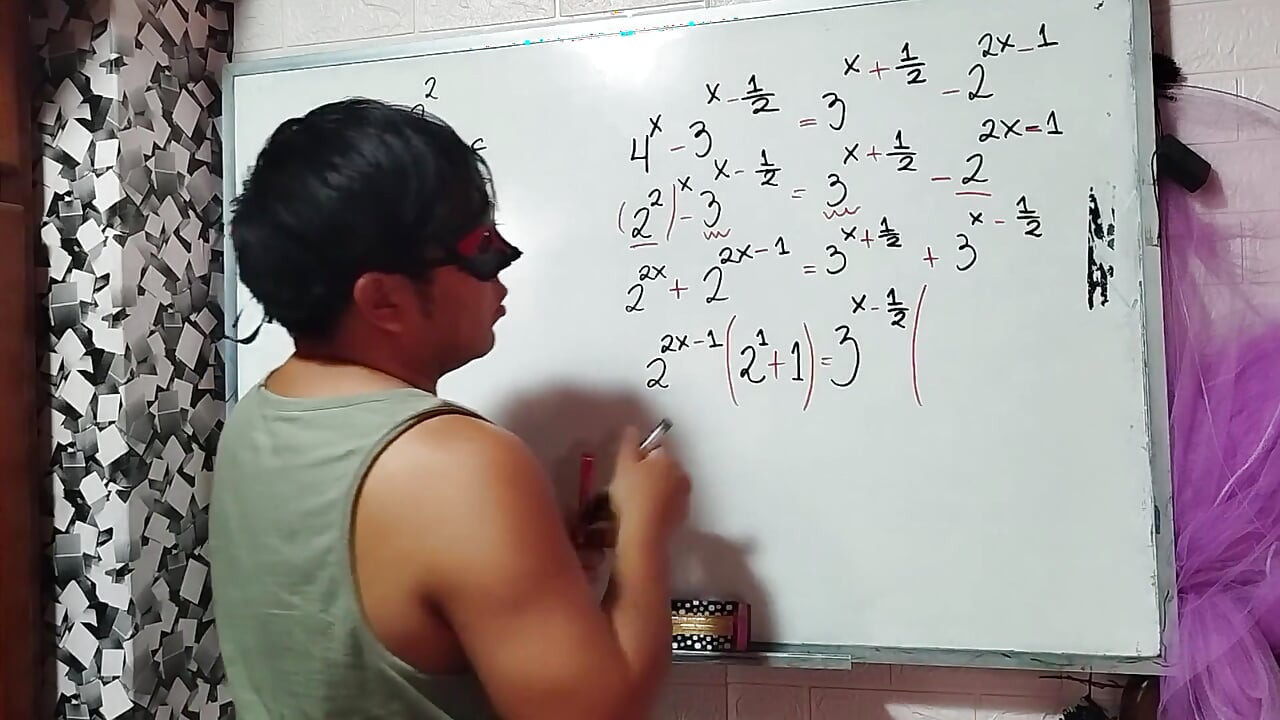 2
4^x - 3^{x - 1/2} = 3^{x + 1/2} - 2^{2x - 1}
(2^2)^x - 3^{x - 1/2} = 3^{x + 1/2} - 2^{2x - 1}
2^{2x} + 2^{2x - 1} = 3^{x + 1/2} + 3^{x - 1/2}
2^{2x - 1} (2^1 + 1) = 3^{x - 1/2} (